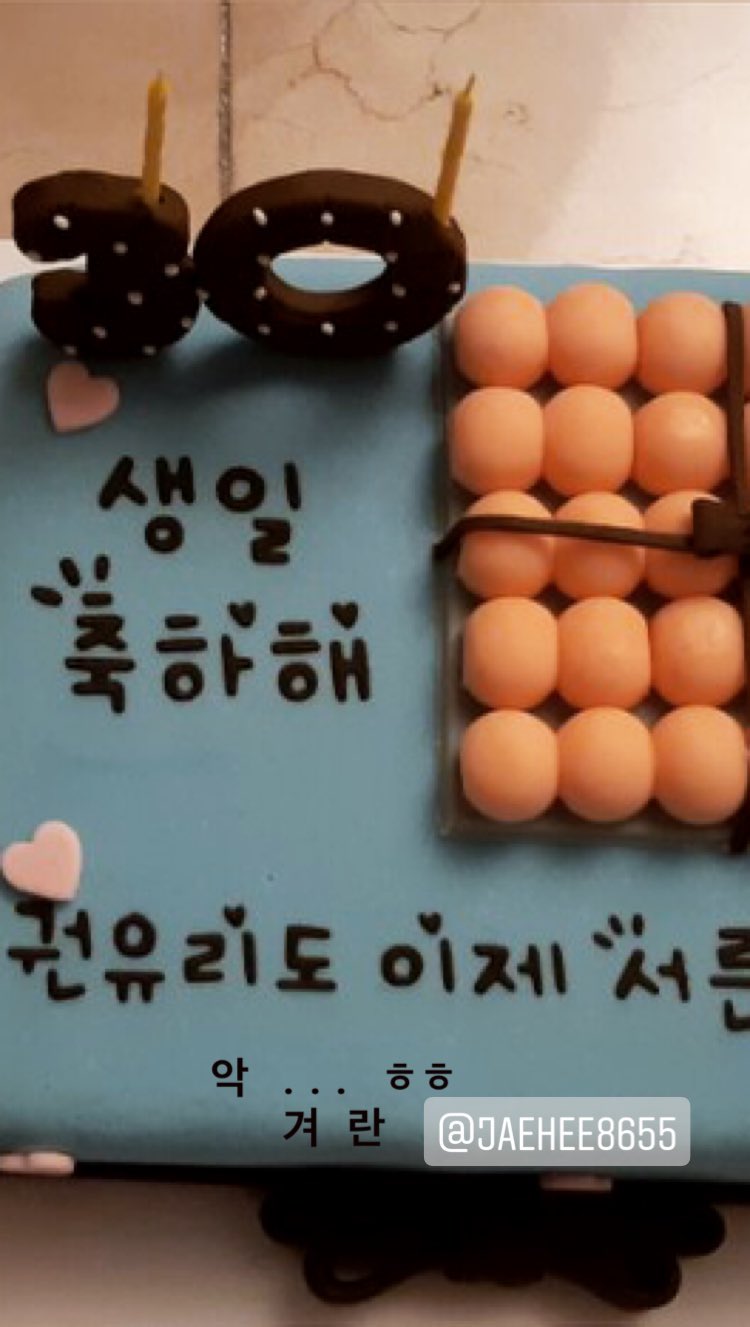 30
생일
축하해
권유리도 이제 서른
악 ... ㅎㅎ
겨 란 @JAEHEE8655